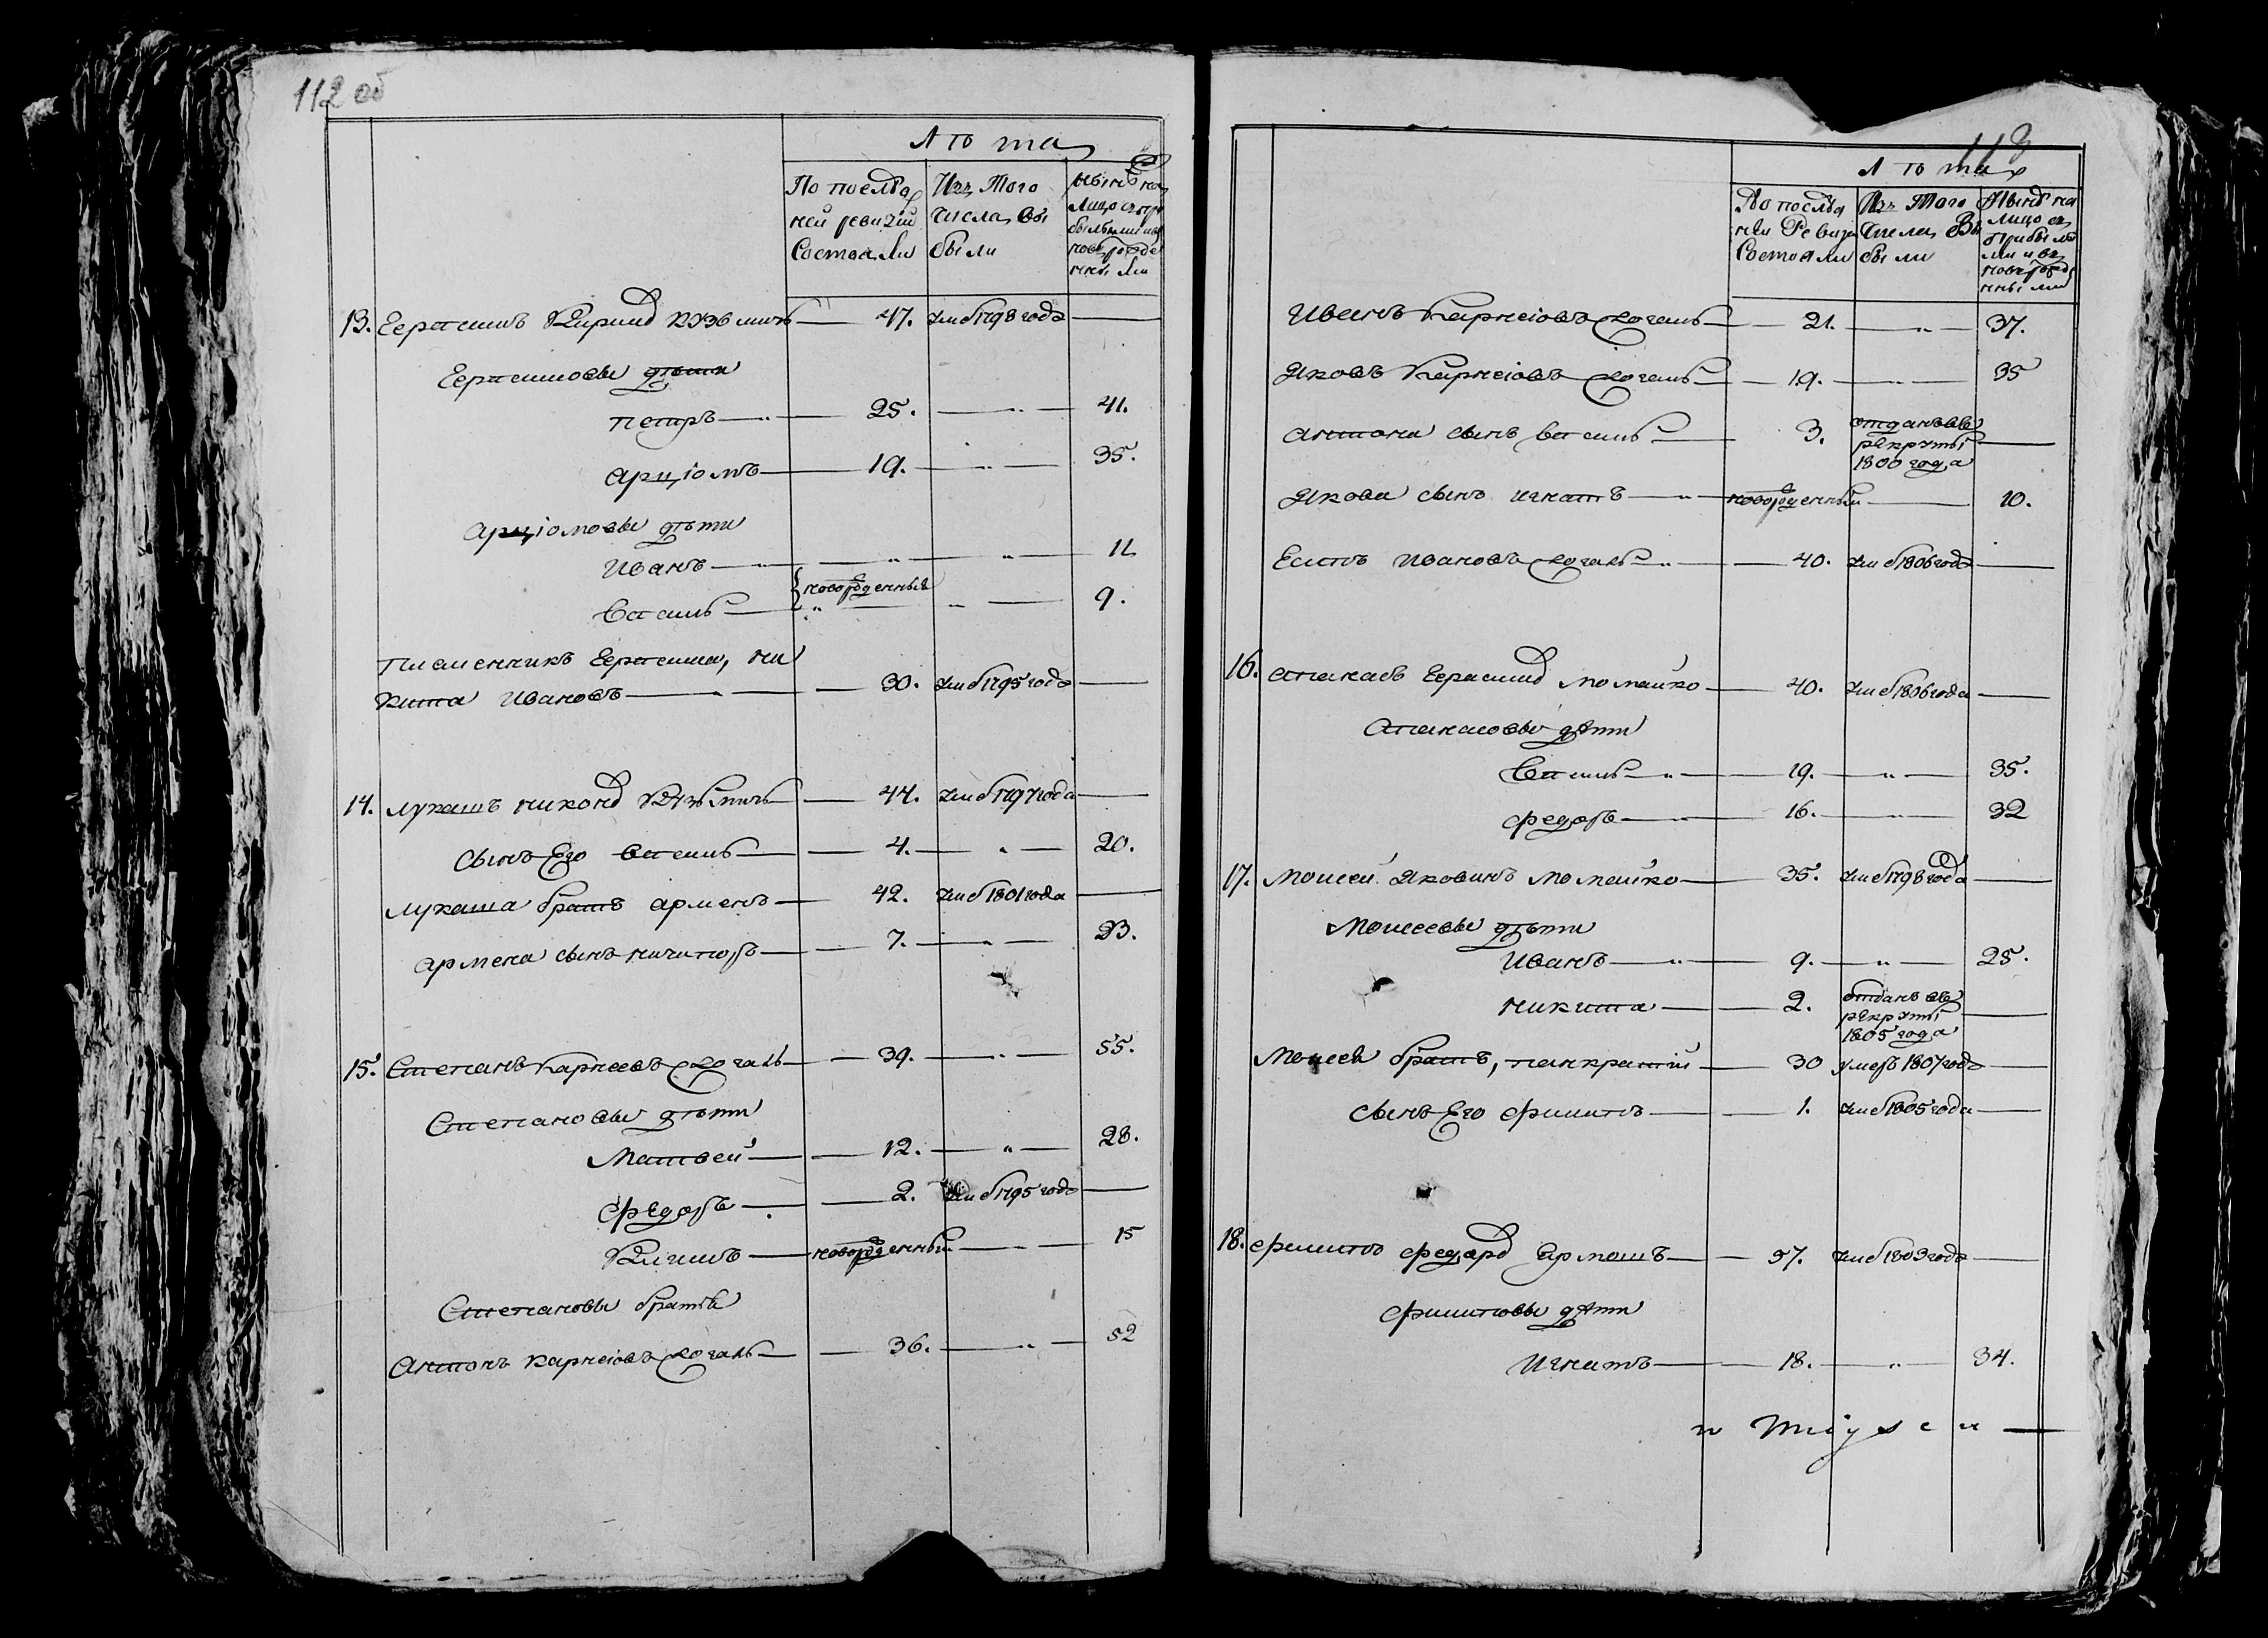 112 об
Лѣта
По послѣд
ней ревизіи
Состояли
Изъ Того
Числа Вы
были
Нынѣ на
Лицо съ при
былыми и въ
новь рожде
нны ми
13. Герасимъ Кирилд Кузьминъ 47. Умеб 1798 года
Герасимовы дѣти
Петръ 25. 41.
Арціомъ 19. 35.
Арціомовы дѣти
Иванъ 11
новорожденный
Василь 9.
Племенникъ Герасима, Ни
кита Ивановъ 30. Умеб 1795 года
14. Лукашъ Никонд Кузьминъ 44. Умеб 1797 года
Сынъ Его Василь 4. 20.
Лукаша братъ Арменъ 42. Умеб 1801 года
Армена сынъ Ничипоръ 7. 23.
15. Степанъ Карнеевъ Коваль 39. 55.
Степановы дѣти
Матвей 12. 28.
Федоръ 2. Умеб 1795 года
Климъ новорожденный 15
Степановы братья
Антонъ Карнеіовъ Коваль 36. 52
113
Лѣта
По послѣд
ней Ревизи
Состояли
Изъ Того
Числа Вы
были
Нынѣ на
лицо съ
Прибылы
ми и въ
новь рожд
нны ми
Иванъ Карнеіовъ Коваль 21. 37.
Яковъ Карнеіовъ Коваль 19. 35
Антона сынъ Василь 3. отданъ въ
рекруты
1800 года
Якова сынъ Игнатъ новорожденный 10.
Есипъ Ивановъ Коваль 40. Умеб 1806 года
16. Апанасъ Герасимд Момайко 40. Умеб 1806 года
Апанасовы дѣти
Василь 19. 35.
Федоръ 16. 32
17. Моисей Яковинъ Момайко 35. Умеб 1798 года
Моисеевы дѣти
Иванъ 9. 25.
Никита 2. отданъ въ
рекруты
1805 года
Моисея братъ, Панкратій 30 умеръ 1807 года
сынъ Его Филипъ 1. Умеб 1805 года
18. Филипъ Федорд Ермашъ 57. Умеб 1803 года
Филиповы дѣти
Игнатъ 18. 34.